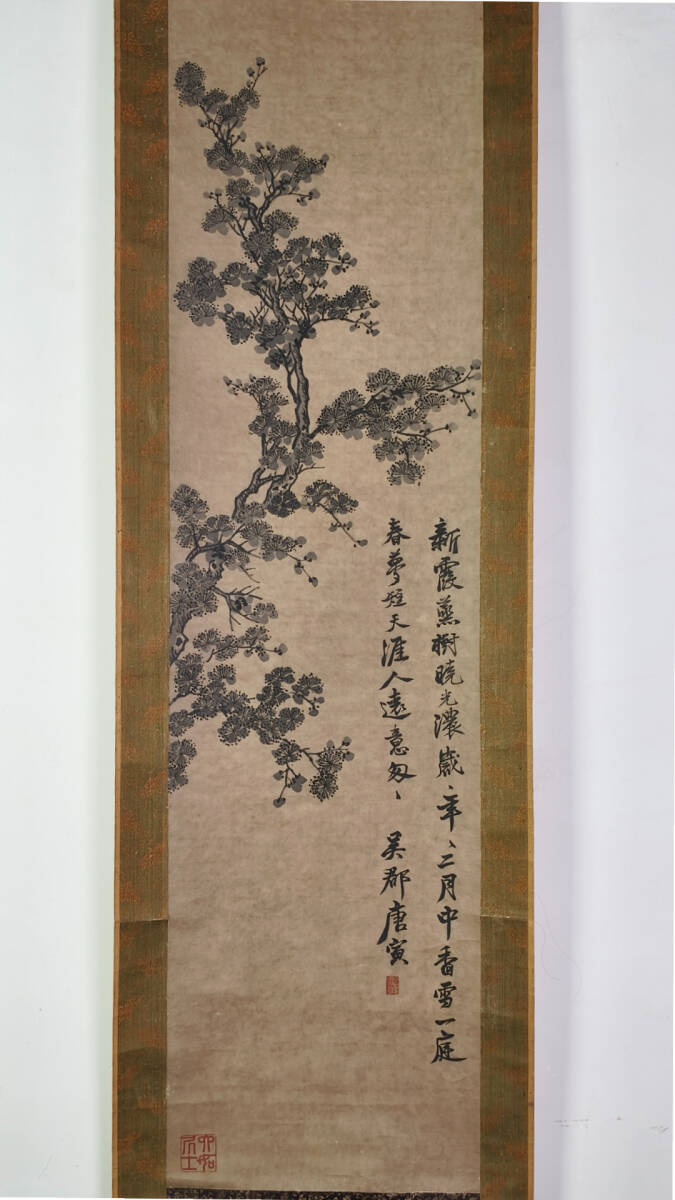 新霞蒸樹曉光濃歲〻年〻二月中香雪一庭
春夢短天涯人遠意匆〻 吳郡唐寅
六如居士